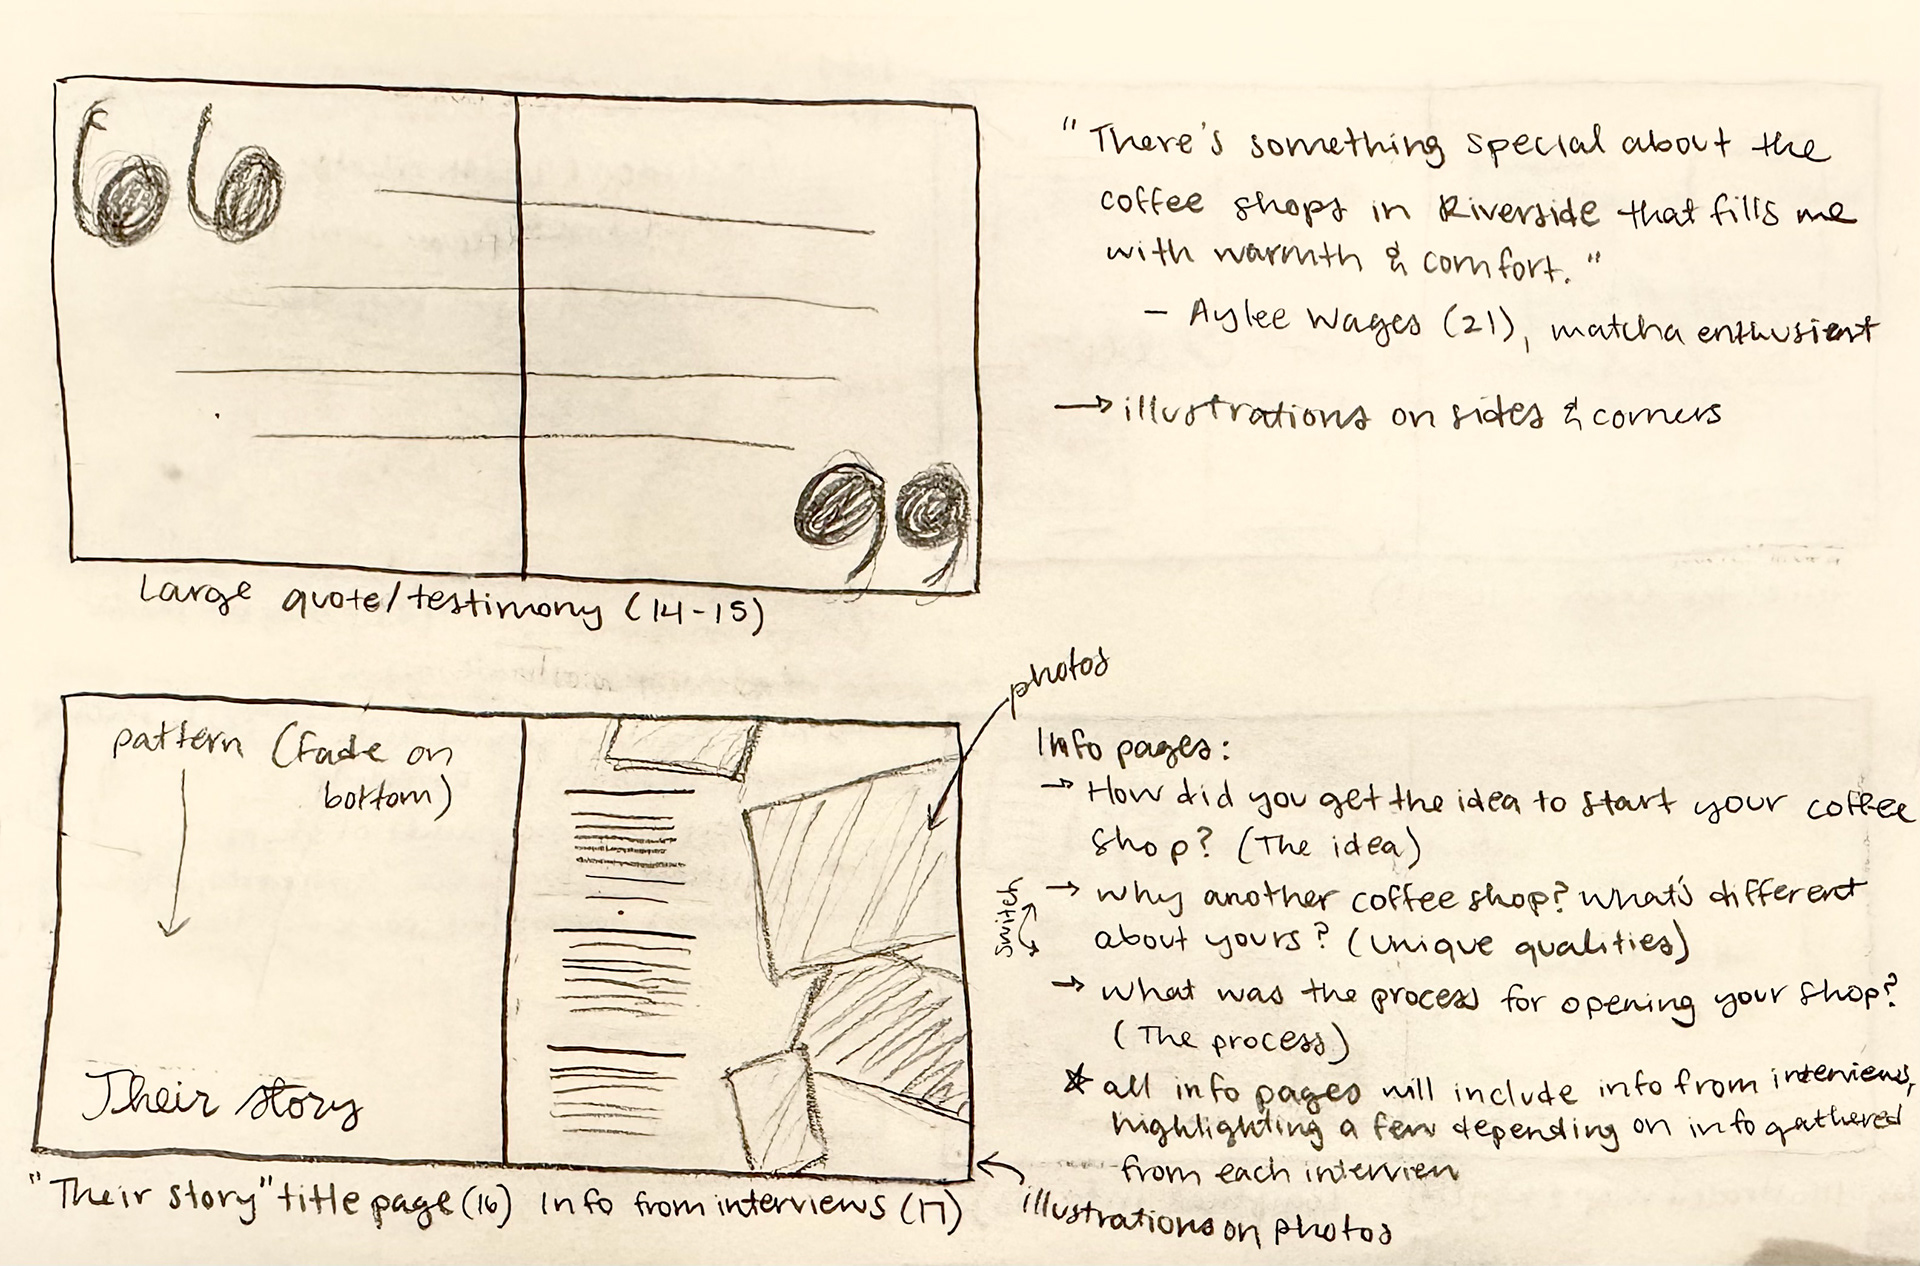 "There's something special about the
coffee shops in Riverside that fills me
with warmth & comfort."
- Aylee Wages (21), matcha enthusient
→ illustrations on sides & corners
Large quote/testimony (14-15)
photos
pattern (fade on
bottom)
Their story
"Their story" title page (16) Info from interviews (17)
Info pages:
→ How did you get the idea to start your coffee
shop? (The idea)
switch
→ why another coffee shop? what's different
about yours? (unique qualities)
→ what was the process for opening your shop?
(The process)
☆ all info pages will include info from interviews,
highlighting a few depending on info gathered
from each interview
illustrations on photos